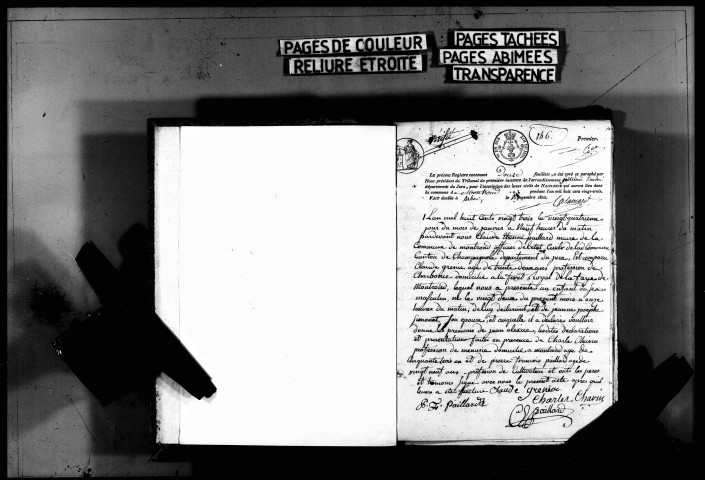 PAGES DE COULEUR
RELIURE ETROITE
PAGES TACHEES
PAGES ABIMEES
TRANSPARENCE
146.
Premier.
Le présent Registre contenant douze feuillets a été coté et paraphé par
Nous président du Tribunal de première instance de l'arrondissement
département du Jura, pour l'inscription des actes civils de Naissance qui auront lieu dans
la commune d pendant l'an mil huit cent vingt-trois.
Fait double à
L'an mil huit Cents vingt trois le vingt quatrieme
jour du mois de janvier a Neuf heures du matin
pardevant nous Claude Etienne paillard maire de la
Commune de montrond officier de l'etat Civil de la Commune
Canton de Champagnole departement du jura, Est comparu
Claude grenier age de trente deux ans profession de
Charbonier domicilie a la foret Royal de la faye de
Montrond, lequel nous a presente un enfant du sexe
masculin ne le vingt deux du present mois a onze
heures du matin, de luy declarant, et de jeanne josephe
son epouse, et auquelle il a declare vouloir
donne les prenoms de jean les dites declarations
et presentation faites en presence de Charle Chauvin
profession de menusie domicilie a montrond age de
Cinquante trois ans et de pierre francois paillard age de
vingt neuf ans profession de Cultivateur et ont les peres
et temoins signe avec nous le present acte apres quil
leurs a ete fait lecture Claude grenier
P. f. Paillard
Charles Chauvin
paillard